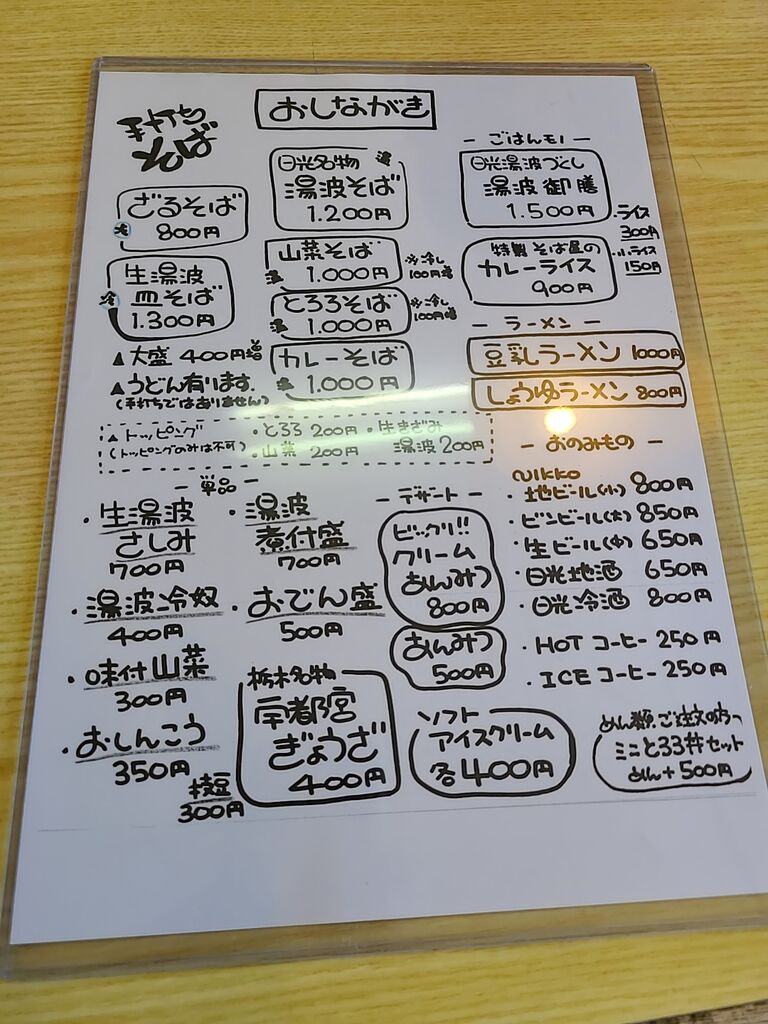 おしながき
手打ち
そば
ざるそば
冷 800円
生湯波
冷 皿そば
1.300円
▲大盛 400円増
▲うどん有ります.
(手打ちではありません)
日光名物 温
湯波そば
1.200円
山菜そば
温 1.000円
※冷し
100円増
とろろそば
温 1.000円
※冷し
100円増
カレーそば
温 1.000円
▲トッピング
(トッピングのみは不可)
・とろろ 200円
・山菜 200円
・生きざみ
湯波 200円
ー ごはんモノ ー
日光湯波づくし
湯波御膳
1.500円
・ライス
300円
・小ライス
150円
特製 そば屋の
カレーライス
900円
ー ラーメン ー
豆乳ラーメン 1000円
しょうゆラーメン 800円
ー 単品 ー
・生湯波
さしみ
700円
・湯波
煮付盛
700円
・湯波冷奴
400円
・おでん盛
500円
・味付山菜
300円
・おしんこう
350円
枝豆
300円
栃木名物
宇都宮
ぎょうざ
400円
ー デザート ー
ビックリ!!
クリーム
あんみつ
800円
あんみつ
500円
ソフト
アイスクリーム
各400円
ー おのみもの ー
NIKKO
・地ビール(小) 800円
・ビンビール(大) 850円
・生ビール(中) 650円
・日光地酒 650円
・日光冷酒 800円
・HOT コーヒー 250円
・ICE コーヒー 250円
めん類ご注文の方へ
ミニとろろ丼セット
めん+500円